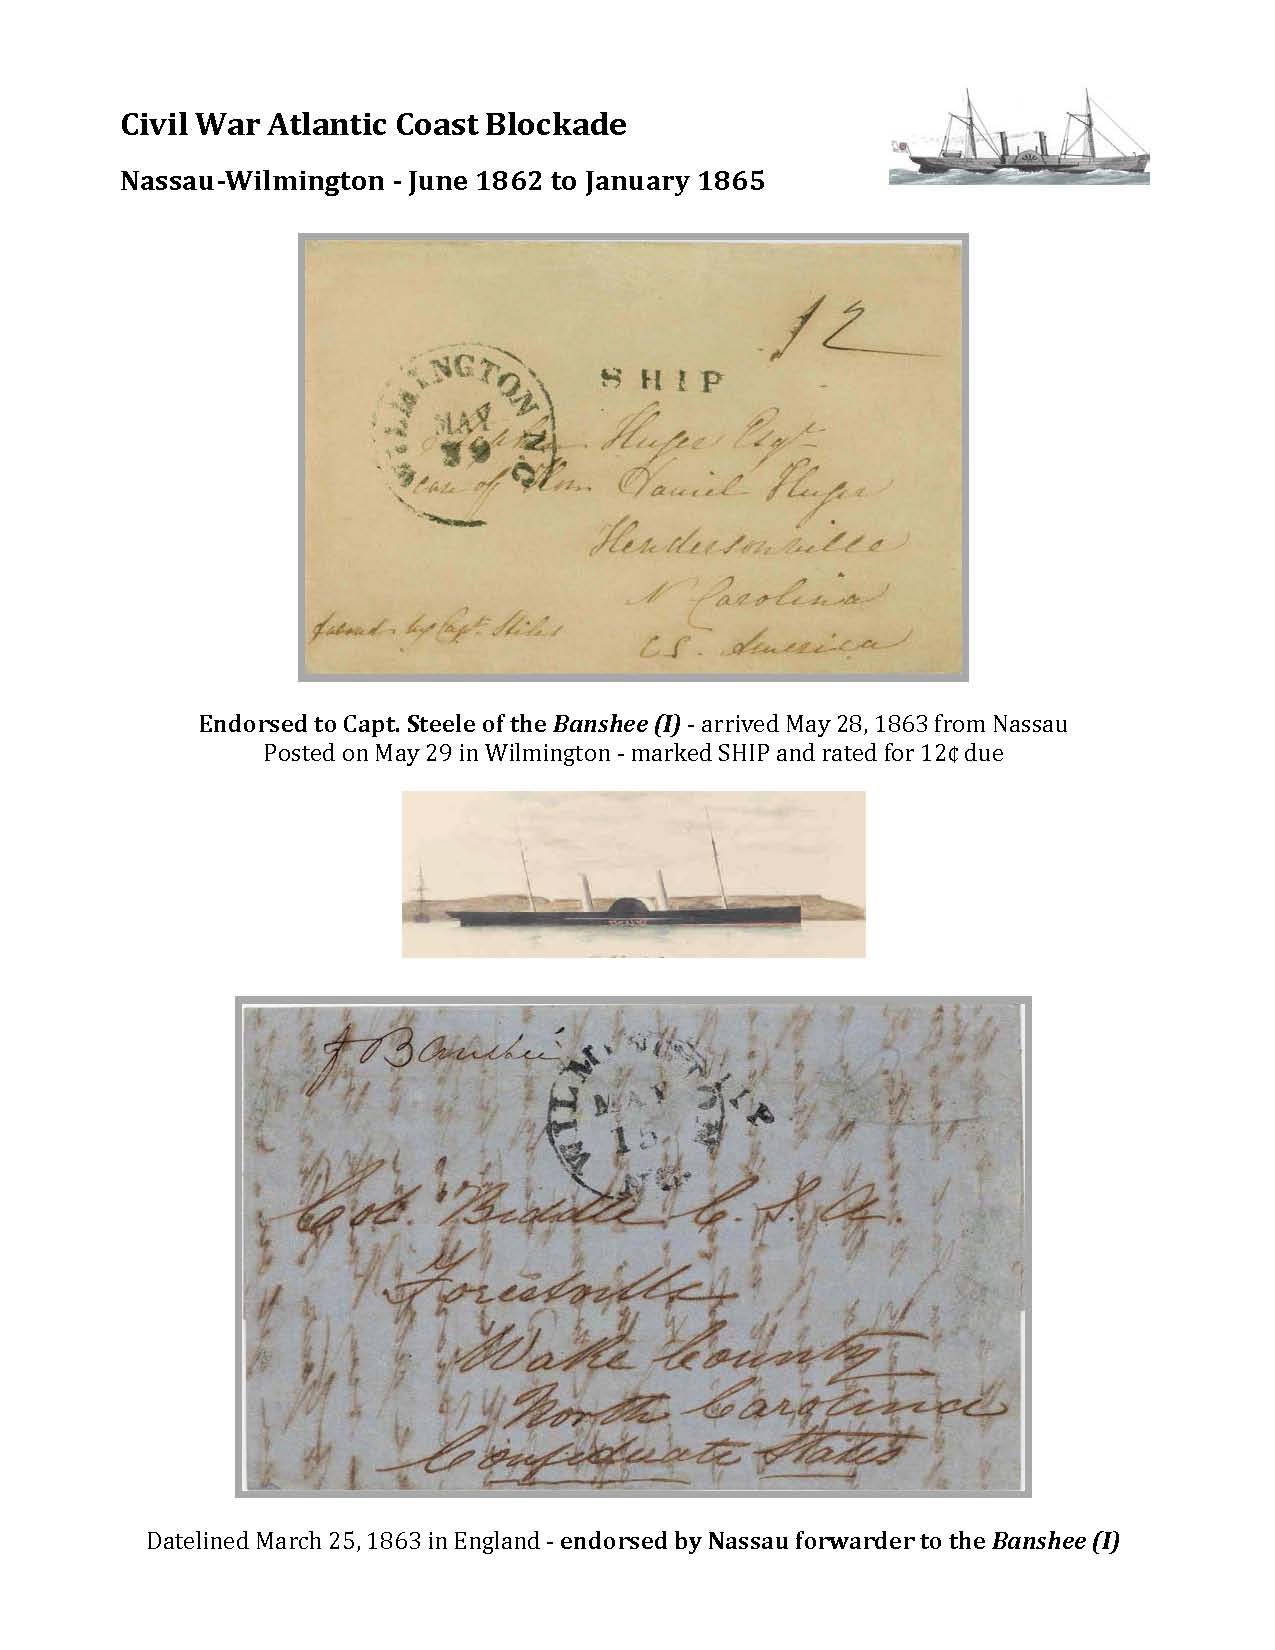 Civil War Atlantic Coast Blockade
Nassau-Wilmington - June 1862 to January 1865
12
SHIP
WILMINGTON N.C.
MAY
29
Huger Esqr
care of Hon. Daniel Huger
Hendersonville
N Carolina
C S. America
by Capt. Stiles
Endorsed to Capt. Steele of the Banshee (I) - arrived May 28, 1863 from Nassau
Posted on May 29 in Wilmington - marked SHIP and rated for 12¢ due
Banshee
WILMINGTON
SHIP
MAY
15
N.C.
Col. Biddle C. S. A.
Forestville
Wake County
North Carolina
Confederate States
Datelined March 25, 1863 in England - endorsed by Nassau forwarder to the Banshee (I)